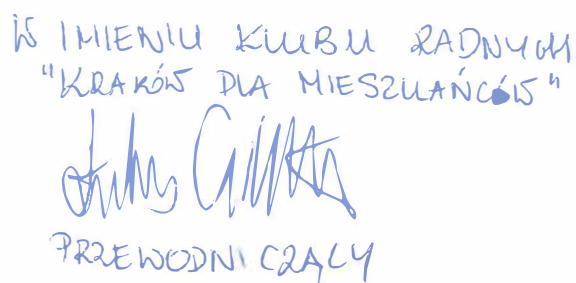 W IMIENIU KLUBU RADNYCH
"KRAKÓW DLA MIESZKAŃCÓW"
PRZEWODNICZĄCY